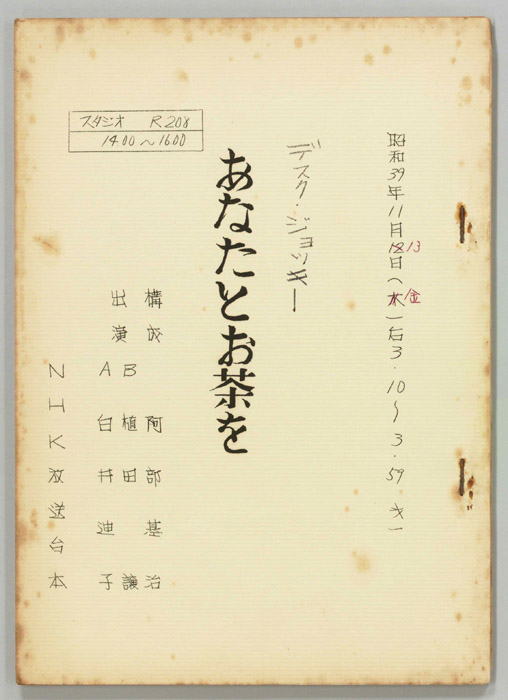 昭和39年11月18日13(水金)后3.10～3.59 オ一
デスク・ジョッキー
あなたとお茶を
スタジオ R208
14.00～16.00
構成 阿部基治
出演 B 植田譲
A 白井迪子
NHK放送台本